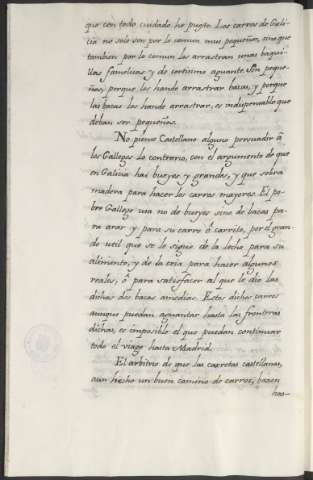 que con todo cuidado he puesto. Los carros de Gali-
cia no solo son por lo comun mui pequeños, sino que
tambien por lo comun los arrastran unas baqui-
llas famelicas y de cortisimo aguante. Son peque-
ños, porque los han de arrastrar bacas, y porque
las bacas los han de arrastrar, es indispensable que
deban ser pequeños.
No piense Castellano alguno persuadir â
los Gallegos lo contrario, con el argumento de que
en Galicia hai bueyes y grandes, y que sobra
madera para hacer los carros mayores. El po-
bre Gallego usa no de bueyes sino de bacas pa-
ra arar y para su carro ô carrito, por el gran-
de util que se le sigue de la leche para su
alimento, y de la cria para hacer algunos
reales, ô para satisfacer al que le dio las
dichas dos bacas amedias. Estos dichos carros
aunque puedan aguantar hasta las fronteras
dichas, es imposible el que puedan continuar
todo el viage hasta Madrid.
El arbitrio de que las carretas castellanas,
aun hecho un buen camino de carros, baxen
has-